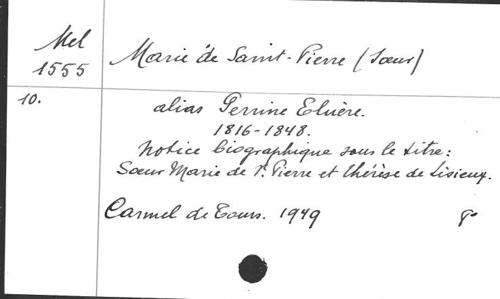 Mel
1555
Marie de Saint-Pierre (Sœur)
10.
alias Perrine Eluère.
1816-1848.
Notice biographique sous le titre:
Sœur Marie de St. Pierre et Thérèse de Lisieux.
Carmel de Tours. 1949
8°